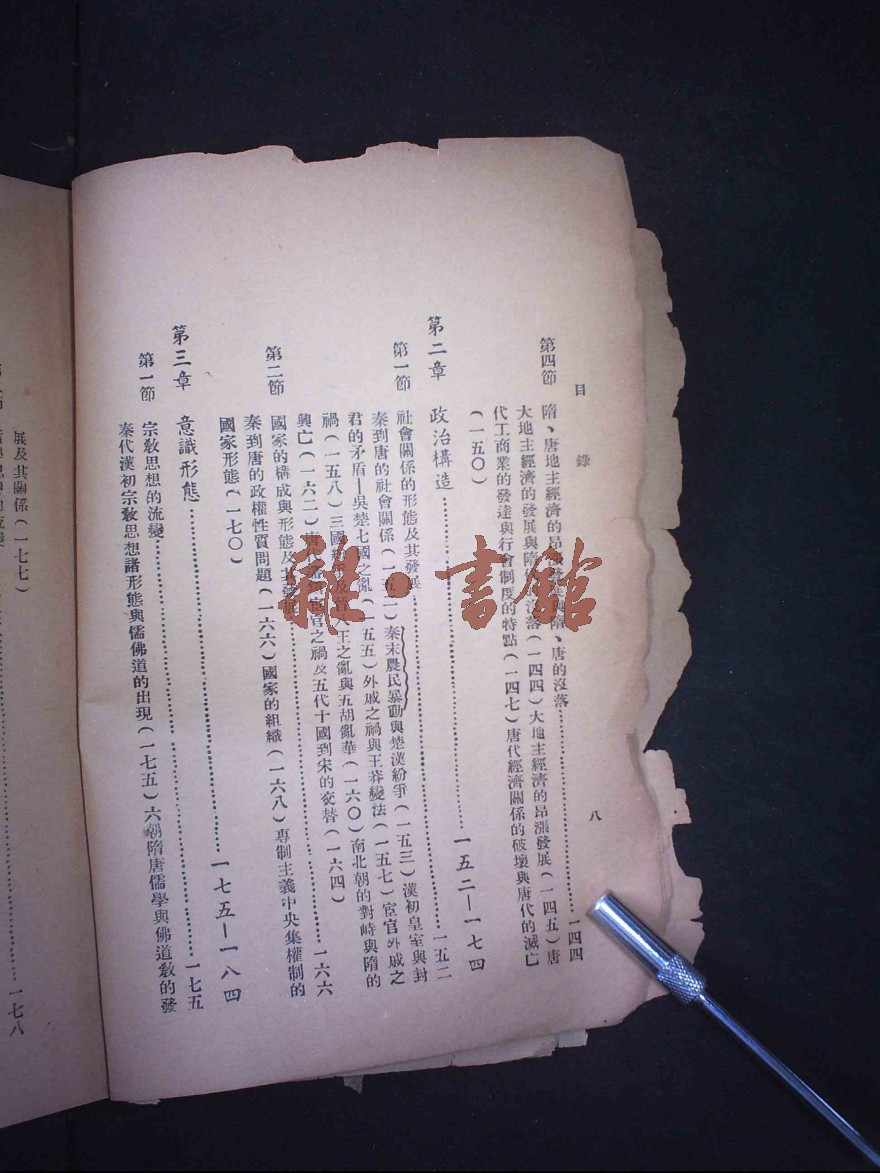 目錄
八
第四節 隋、唐地主經濟的昂漲發展與隋、唐的沒落…………一四四
大地主經濟的發展與隋的沒落(一四四)大地主經濟的昂漲發展(一四五)唐
代工商業的發達與行會制度的特點(一四七)唐代經濟關係的破壞與唐代的滅亡
(一五〇)
第二章 政治構造…………一五二—一七四
第一節 社會關係的形態及其發展…………一五二
秦到唐的社會關係(一五二)秦末農民暴動與楚漢紛爭(一五三)漢初皇室與封
君的矛盾—吳楚七國之亂(一五五)外戚之禍與王莽變法(一五七)宦官外戚之
禍(一五八)三國紛爭及晉八王之亂與五胡亂華(一六〇)南北朝的對峙與隋的
興亡(一六二)唐代藩鎮宦官之禍及五代十國到宋的交替(一六四)
第二節 國家的構成與形態及其發展…………一六六
秦到唐的政權性質問題(一六六)國家的組織(一六八)專制主義中央集權制的
國家形態(一七〇)
第三章 意識形態…………一七五—一八四
第一節 宗教思想的流變…………一七五
秦代漢初宗教思想諸形態與儒佛道的出現(一七五)六朝隋唐儒學與佛道教的發
展及其關係(一七七)
一七八
雜·書館